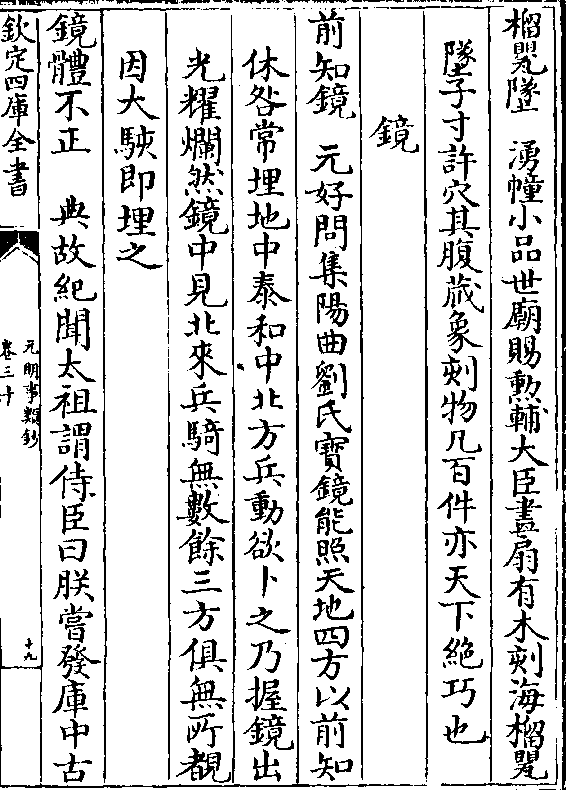 榴㫰墜　湧幢小品世廟賜勲輔大臣畫扇有木刻海榴㫰
墜子寸許穴其腹蔵象刻物凡百件亦天下絶巧也
鏡
前知鏡　元好問集陽曲劉氏寳鏡能照天地四方以前知
休咎常埋地中泰和中北方兵動欲卜之乃握鏡出
光耀爛然鏡中見北來兵騎無數餘三方俱無所覩
因大駭即埋之
鏡體不正　典故紀聞太祖謂侍臣曰朕嘗發庫中古
欽定四庫全書
元明事類鈔
卷三十
十九